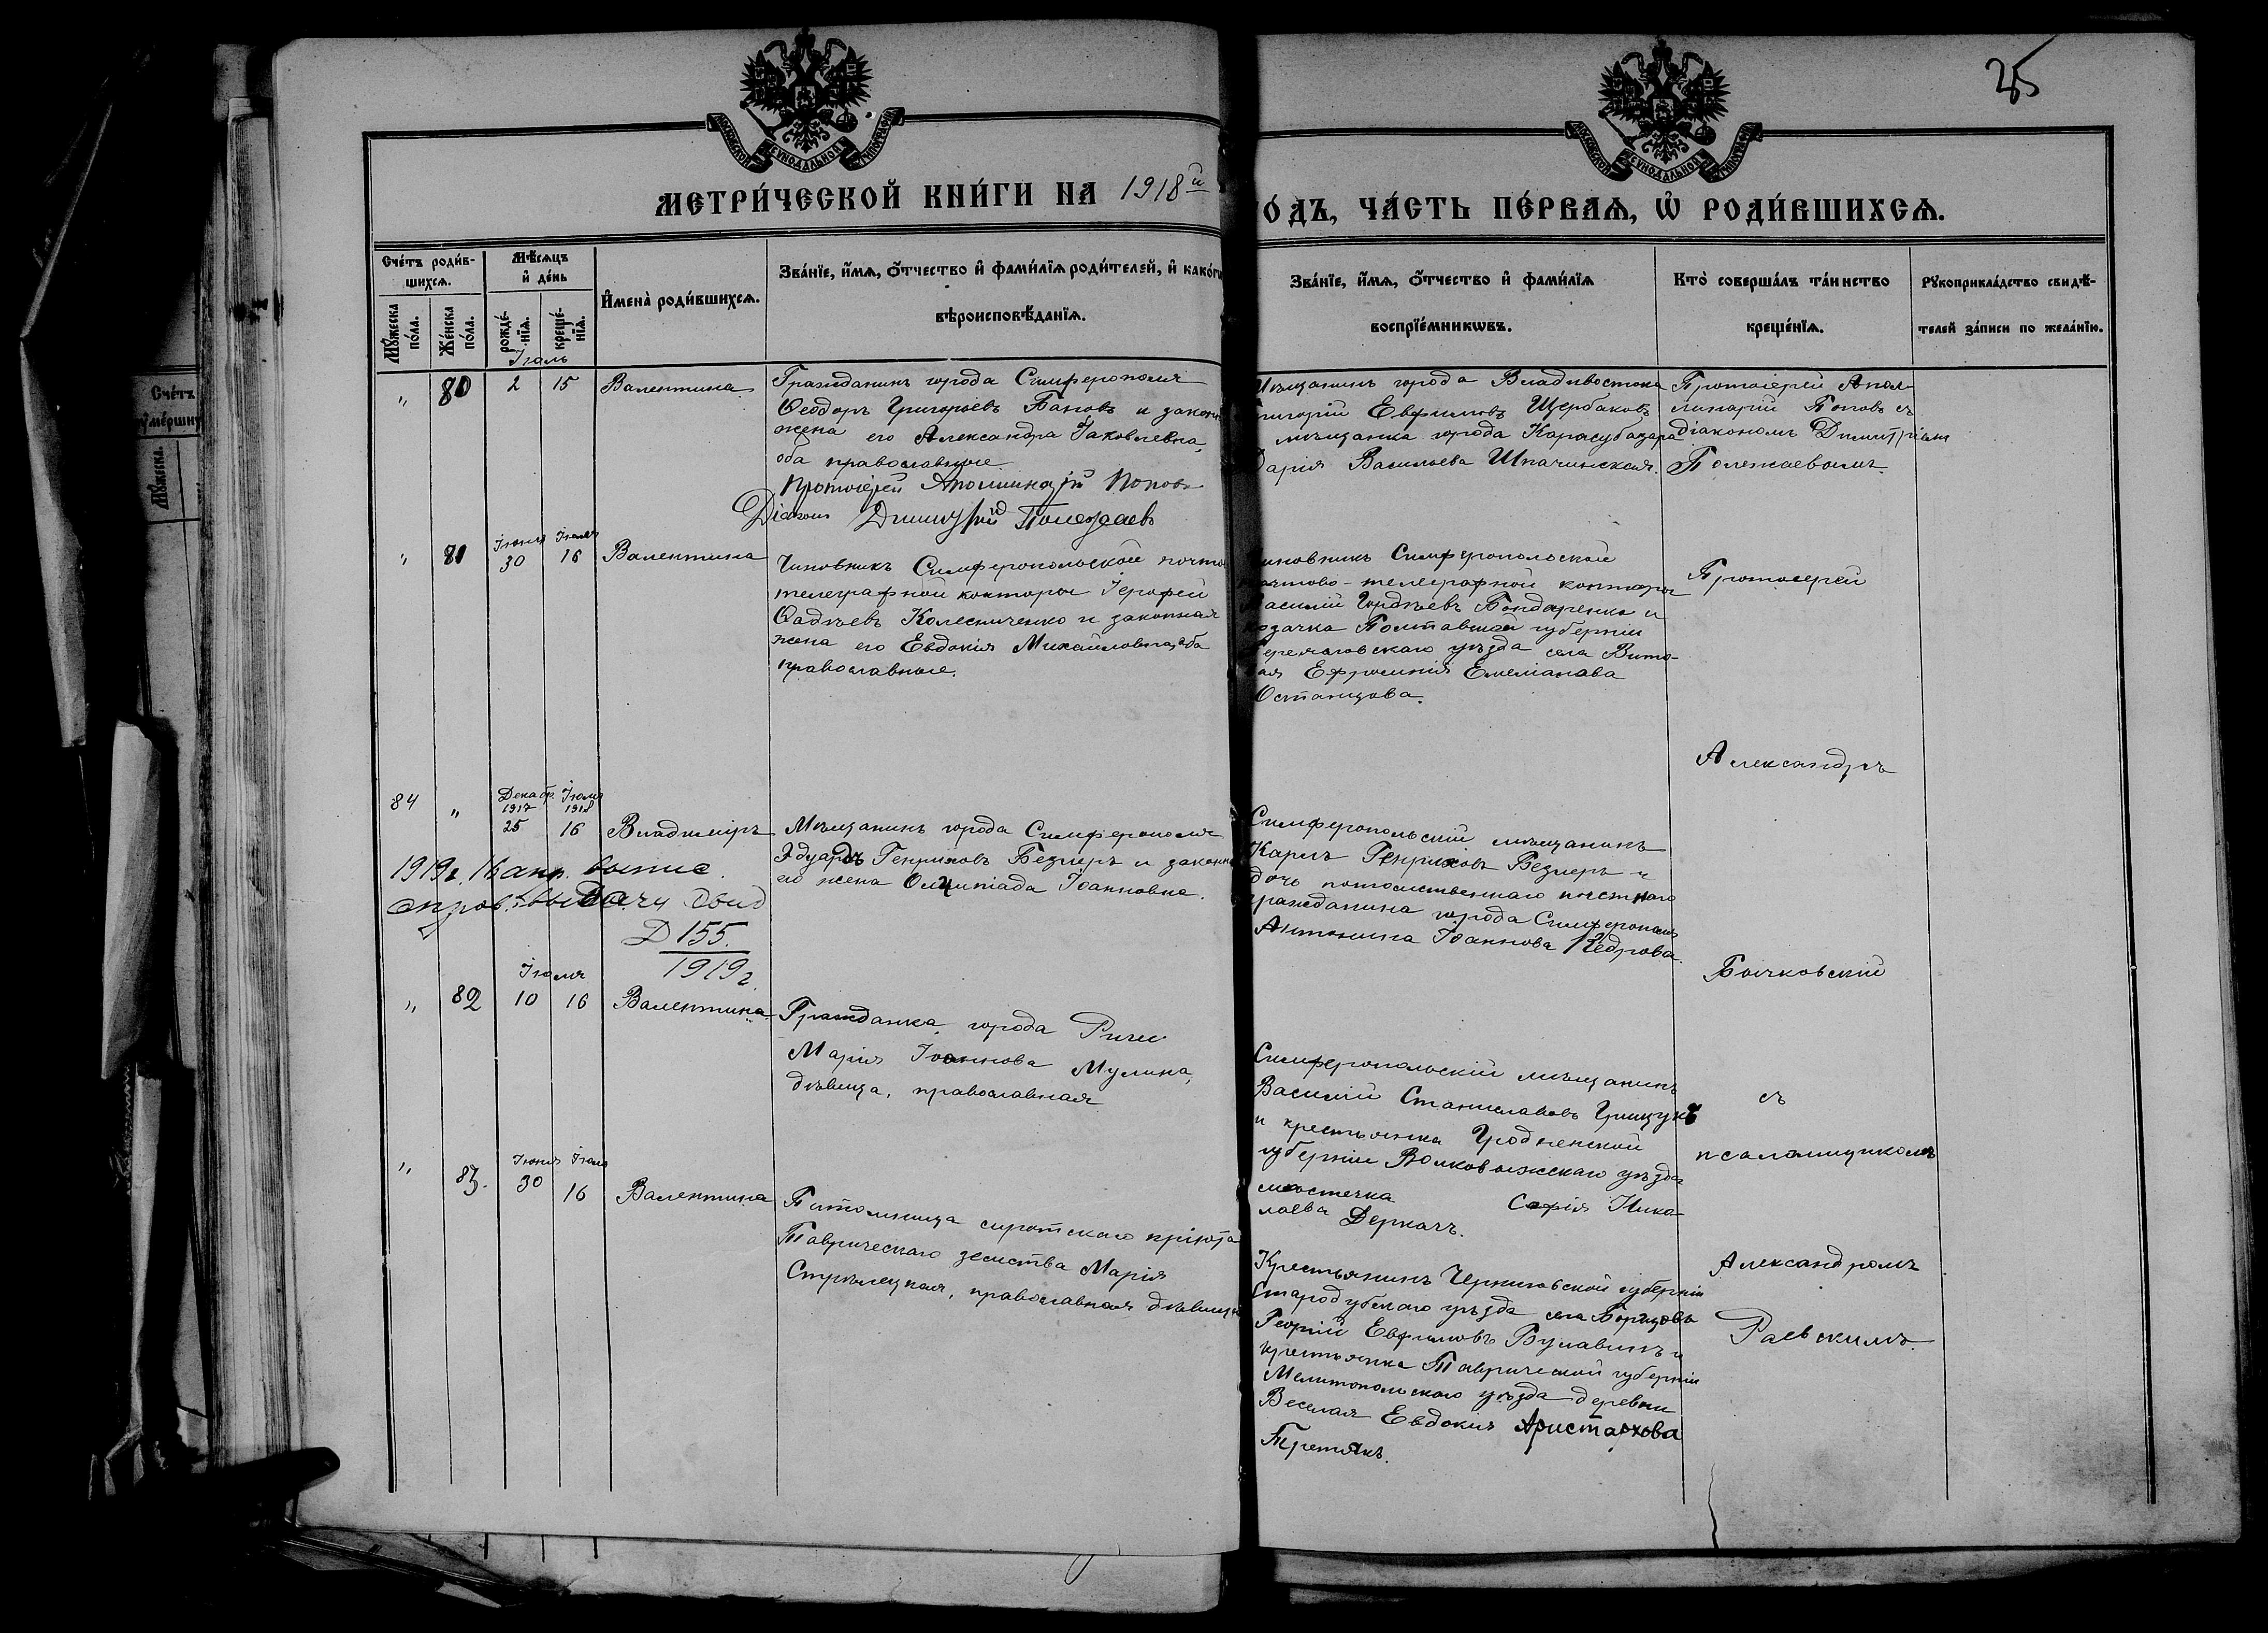 25
МОСКОВСКОЙ СѴНОДАЛЬНОЙ ТИПОГРАФІИ
МОСКОВСКОЙ СѴНОДАЛЬНОЙ ТИПОГРАФІИ
МЕТРИ́ЧЕСКОЙ КНИ́ГИ НА 1918й
О́ДЪ, ЧА́СТЬ ПЕ́РВАѦ, Ѡ҆ РОДИ́ВШИХСѦ.
Сче́тъ роди́в-
шихсѧ.
Мѹ́жеска по́ла.
Же́нска по́ла.
Мѣ́сѧцъ
и҆ де́нь
рожде́-
нїѧ.
креще́-
нїѧ.
И҆мена̀ роди́вшихсѧ.
Зва́нїе, и҆́мѧ, ѻ҆́тчество и҆ фами́лїѧ роди́телей, и҆ како́гѡ
вѣроисповѣ́данїѧ.
Зва́нїе, и҆́мѧ, ѻ҆́тчество и҆ фами́лїѧ
воспрїе́мникѡвъ.
Кто̀ соверша́лъ та́инство
креще́нїѧ.
Рꙋкоприкла́дство свидѣ́-
телей за́писи по жела́нїю.
Іюль
" 80 2 15 Валентина
Гражданинъ города Симферополя
Ѳеодоръ Григорьевъ Пановъ и законн
жена его Александра Іаковлевна,
оба православные.
Протоіерей Аполлинарій Поповъ
Діаконъ Димитрій Полежаевъ
Мѣщанинъ города Владивостока
Григорій Евфимовъ Щербаковъ
мѣщанка города Карасубазара
Дарія Васильева Шпачинская.
Протоіерей Апол-
линарій Поповъ съ
діакономъ Димитріемъ
Полежаевымъ.
Іюня Іюля
" 81 30 16 Валентина
Чиновникъ Симферопольской почто
телеграфной конторы Іерофей
Ѳадѣевъ Колесниченко и законная
жена его Евдокія Михайловна, оба
православные.
чиновникъ Симферопольской
почтово-телеграфной конторы
Василій Гордѣевъ Бондаренко и
козачка Полтавской губерніи
уѣзда села Вито-
Ефросинія Емеліанова
Останцова.
Протоіерей
Александръ
Бычковскій
съ
псаломщикомъ
Александромъ
Раевскимъ.
Декабр. Іюля
1917 1918
84 " 25 16 Владиміръ
Мѣщанинъ города Симферополя
Эдуардъ Генриховъ Безлеръ и законн
его жена Олимпіада Іоанновна.
1919г. 16 апр. выпис.
D 155.
1919г.
Симферопольскій мѣщанинъ
Карлъ Генриховъ Безлеръ и
дочь потомственнаго почетнаго
гражданина города Симферополя
Антонина Іоаннова Кедрова.
Іюля
" 82 10 16 Валентина
Гражданка города Риги
Марія Іоаннова Мулина,
дѣвица, православная
Симферопольскій мѣщанинъ
Василій Станиславовъ Грицукъ
и крестьянка Гродненской
губерніи Волковыжскаго уѣзда
мѣстечка Софія Нико-
лаева Деркачъ.
Іюня Іюля
" 83. 30 16 Валентина
Питомница сиротскаго пріюта
Таврическаго земства Марія
Стрѣлецкая, православная дѣвица
Крестьянинъ Черниговской губерніи
Стародубскаго уѣзда села
Георгій Евфимовъ Булавинъ и
крестьянка Таврической губерніи
Мелитопольскаго уѣзда деревни
Веселая Евдокія Аристархова
Третякъ.
Сче́тъ
ꙋме́рши
Мꙋ́жеска.